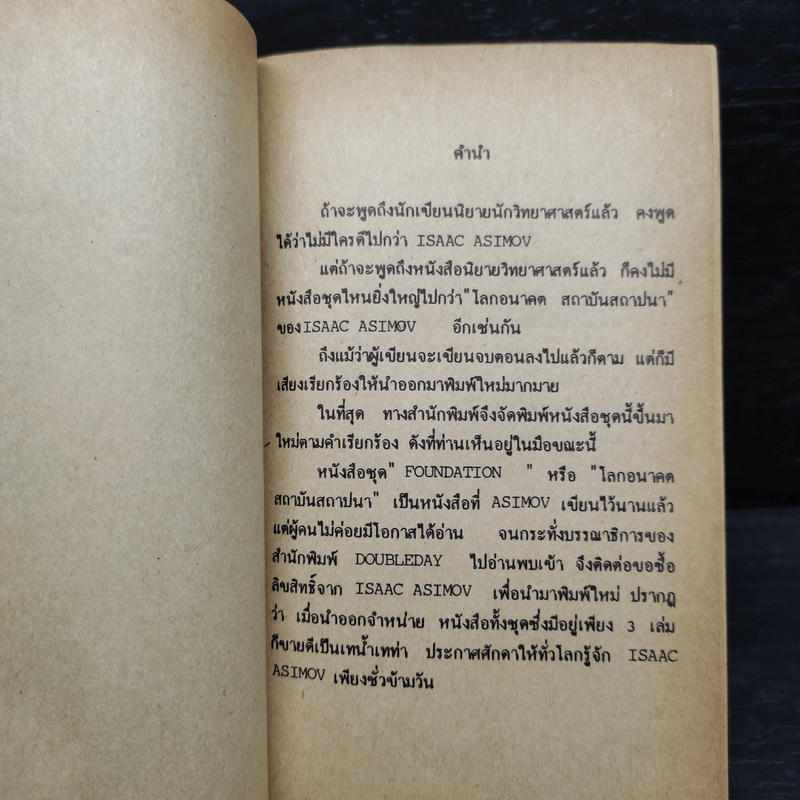 คำนำ
ถ้าจะพูดถึงนักเขียนนิยายนักวิทยาศาสตร์แล้ว คงพูด
ได้ว่าไม่มีใครดีไปกว่า ISAAC ASIMOV
แต่ถ้าจะพูดถึงหนังสือนิยายวิทยาศาสตร์แล้ว ก็คงไม่มี
หนังสือชุดไหนยิ่งใหญ่ไปกว่า"โลกอนาคต สถาบันสถาปนา"
ของISAAC ASIMOV อีกเช่นกัน
ถึงแม้ว่าผู้เขียนจะเขียนจบตอนลงไปแล้วก็ตาม แต่ก็มี
เสียงเรียกร้องให้นำออกมาพิมพ์ใหม่มากมาย
ในที่สุด ทางสำนักพิมพ์จึงจัดพิมพ์หนังสือชุดนี้ขึ้นมา
ใหม่ตามคำเรียกร้อง ดังที่ท่านเห็นอยู่ในมือขณะนี้
หนังสือชุด" FOUNDATION " หรือ "โลกอนาคต
สถาบันสถาปนา" เป็นหนังสือที่ ASIMOV เขียนไว้นานแล้ว
แต่ผู้คนไม่ค่อยมีโอกาสได้อ่าน จนกระทั่งบรรณาธิการของ
สำนักพิมพ์ DOUBLEDAY ไปอ่านพบเข้า จึงติดต่อขอซื้อ
ลิขสิทธิ์จาก ISAAC ASIMOV เพื่อนำมาพิมพ์ใหม่ ปรากฏ
ว่า เมื่อนำออกจำหน่าย หนังสือทั้งชุดซึ่งมีอยู่เพียง 3 เล่ม
ก็ขายดีเป็นเทน้ำเทท่า ประกาศศักดาให้ทั่วโลกรู้จัก ISAAC
ASIMOV เพียงชั่วข้ามวัน